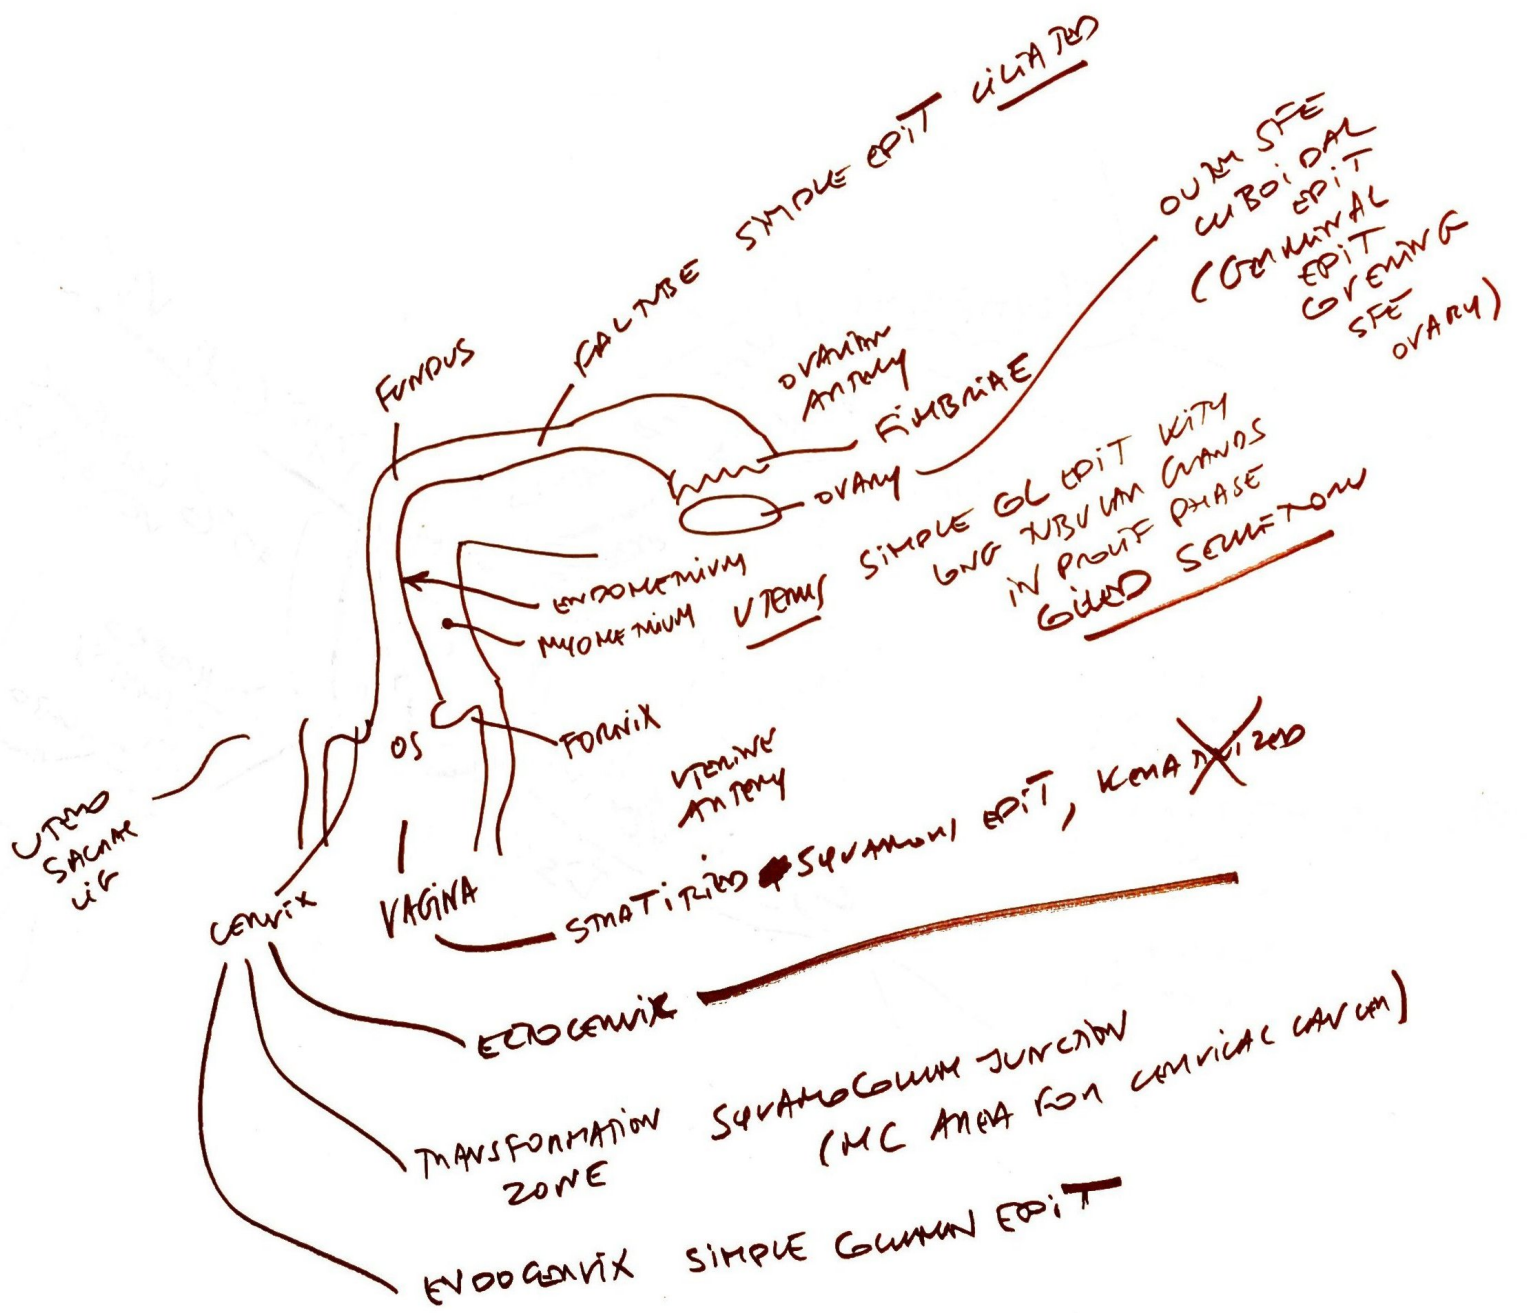 FALTUBE SIMPLE EPIT CILIATED
FUNDUS
OVARIAN
ARTERY
FIMBRIAE
OVARY
OUTER SFE
CUBOIDAL
EPIT
(GERMINAL
EPIT
COVERING
SFE
OVARY)
ENDOMETRIUM
MYOMETRIUM
UTERUS SIMPLE COL EPIT WITH
LONG TUBULAR GLANDS
IN PROLIF PHASE
COILED SECRETORY
OS
FORNIX
UTERINE
ARTERY
UTERO
SACRAL
LIG
CERVIX
VAGINA
STRATIFIED SQUAMOUS EPIT, KERATINIZED
ECTOCERVIX
TRANSFORMATION
ZONE
SQUAMOCOLUMN JUNCTION
(MC AREA FOR CERVICAL CANCER)
ENDOCERVIX SIMPLE COLUMN EPIT